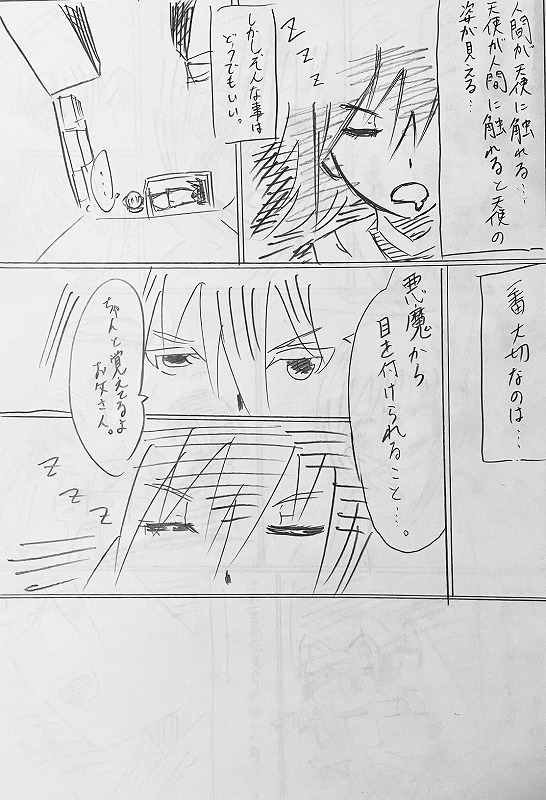 人間が天使に触れる…
天使が人間に触れると天使の
姿が見える…
Z
Z
Z
しかしそんな事は
どうでもいい。
…
一番大切なのは…
悪魔から
目を付けられること…。
ちゃんと覚えてるよ
お父さん。
Z
Z
Z